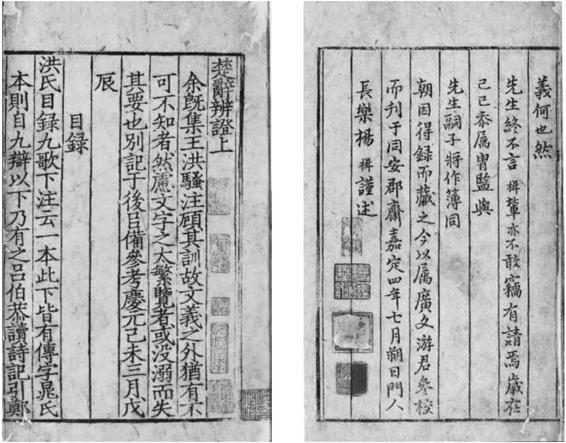 義何也然
先生終不言楫輩亦不敢竊有請焉歲在
己巳忝屬冑監與
先生嗣子將作簿同
朝因得録而藏之今以屬廣文游君參校
而刊于同安郡齋嘉定四年七月朔日門人
長樂楊楫謹述
楚辭辨證上
余旣集王洪騷注顧其訓故文義之外猶有不
可不知者然慮文字之太繁覽者或没溺而失
其要也别記于後㠯備參考慶元己未三月戊
辰
目録
洪氏目録九歌下注云一本此下皆有傳字晁氏
本則自九辯以下乃有之吕伯恭讀詩記引鄭